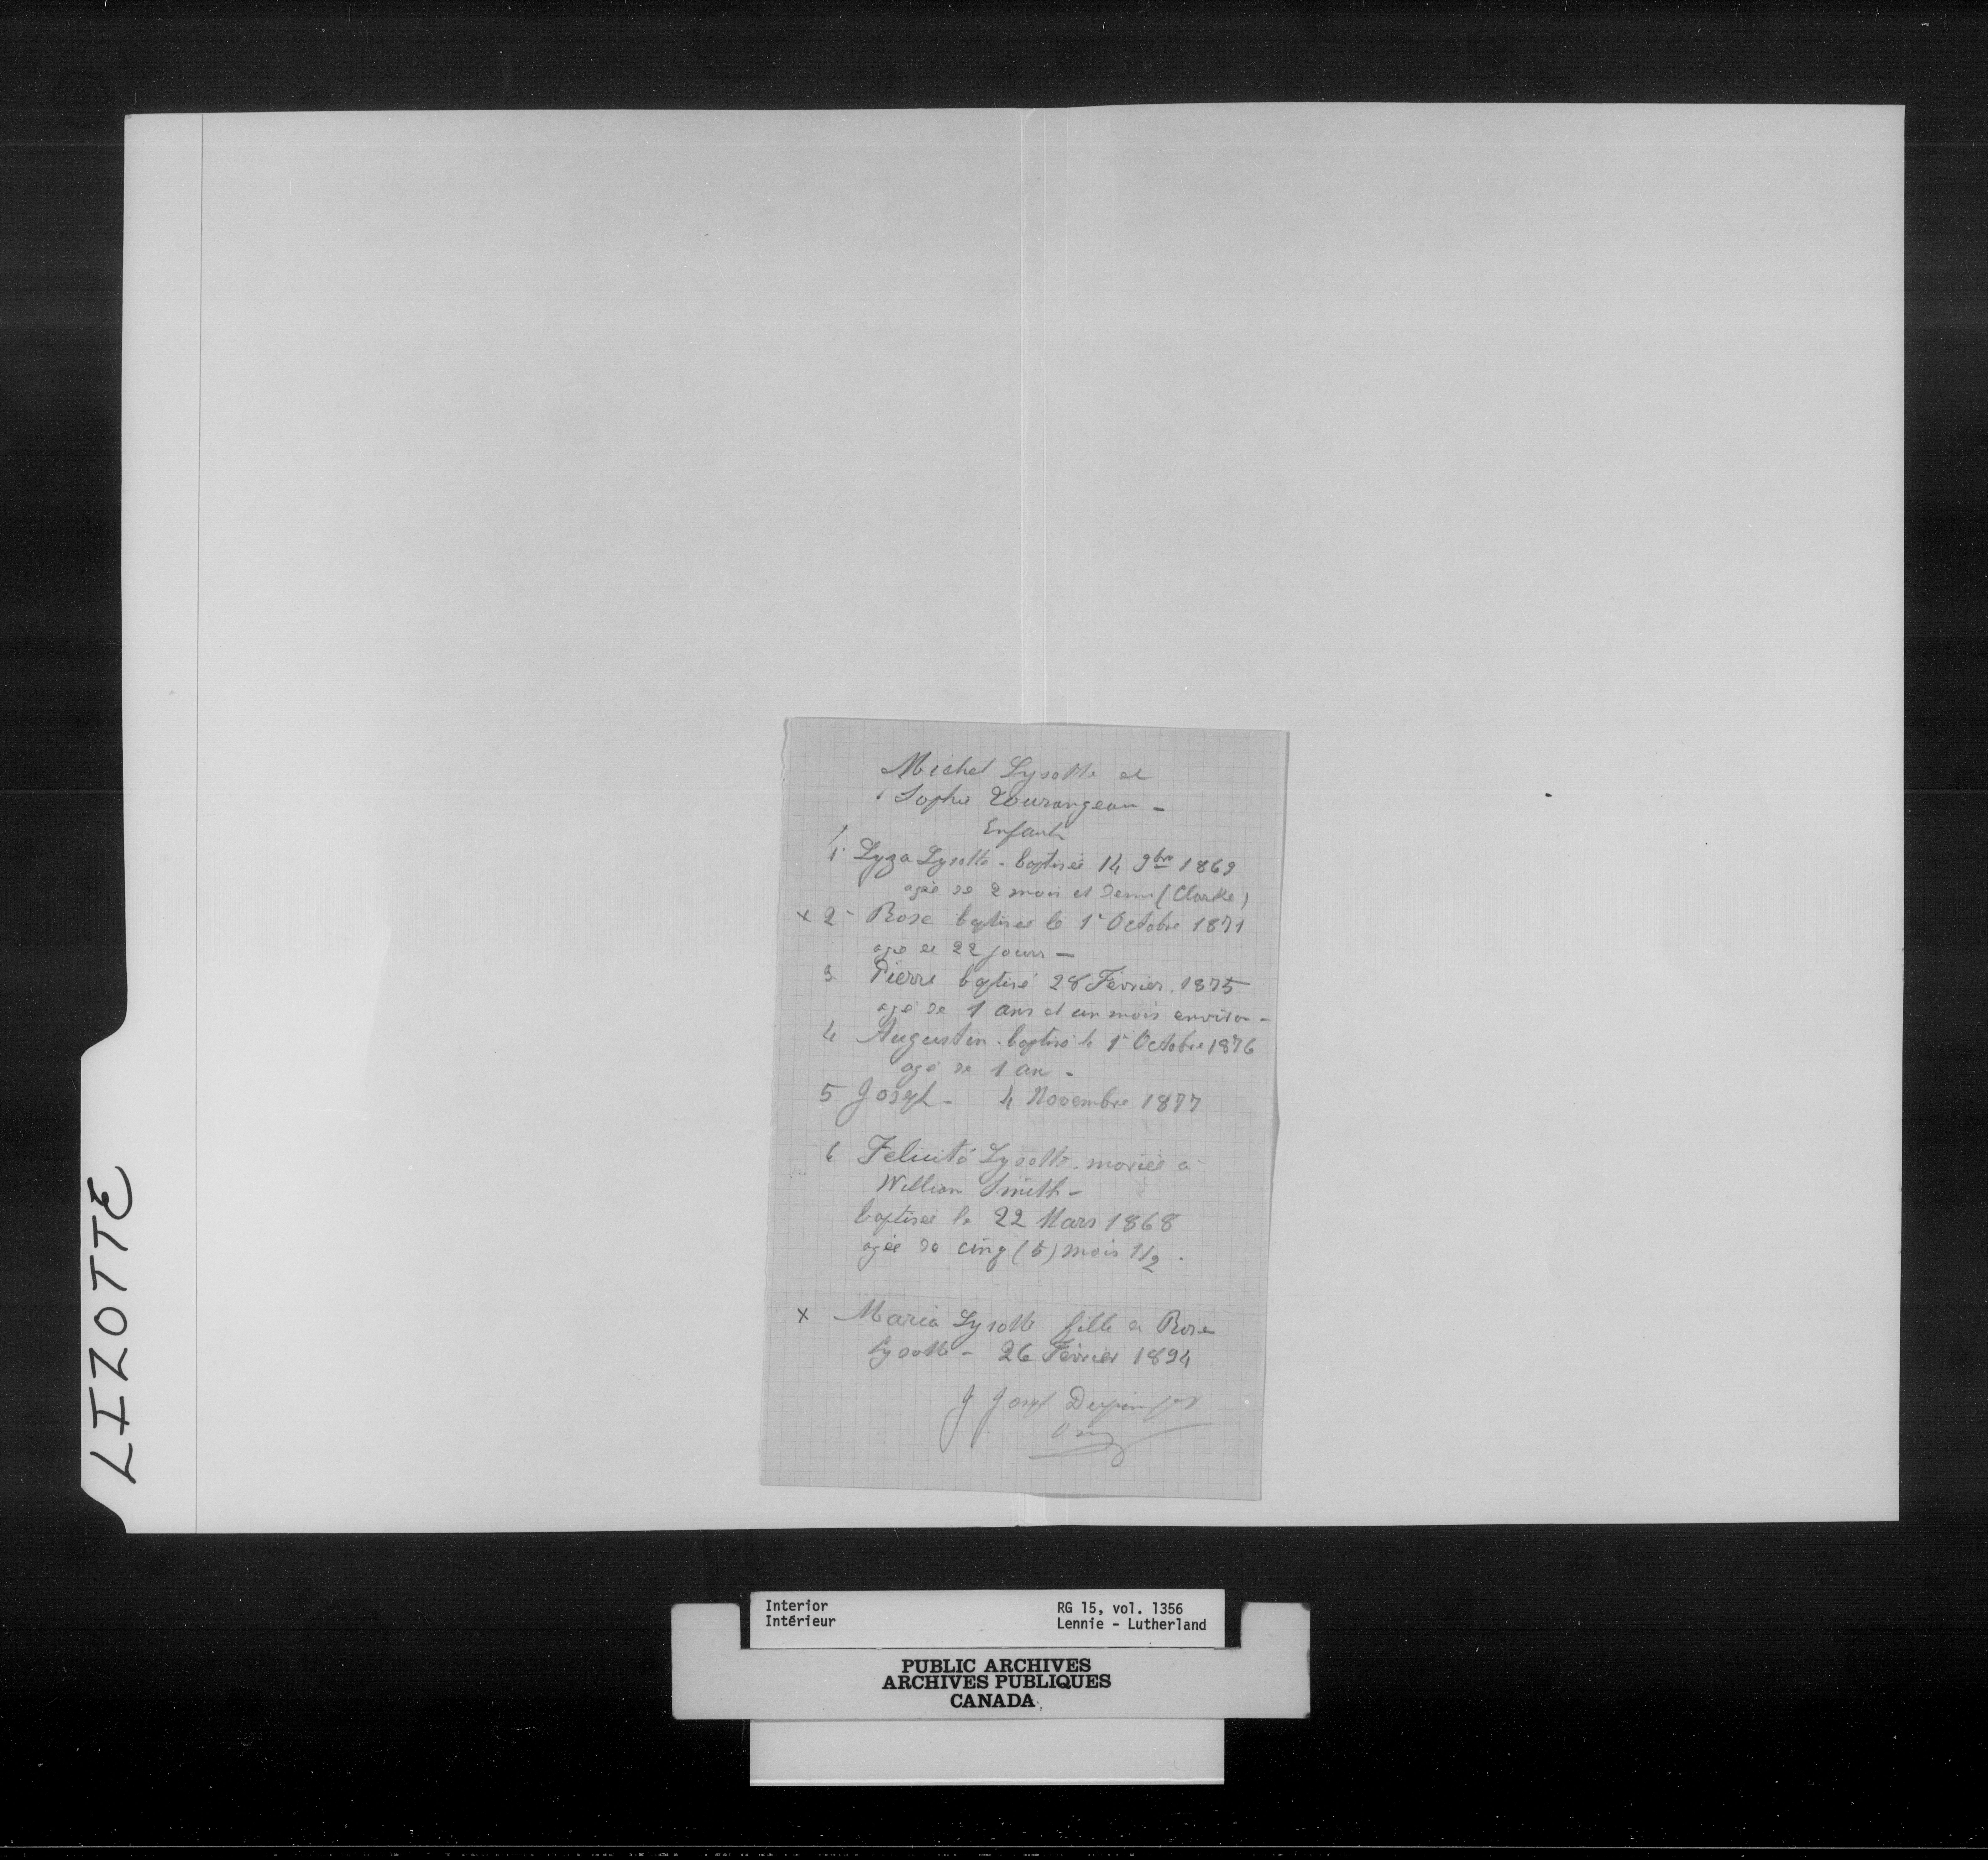 Michel Lysotte et
Sophie Tourangeau -
Enfants
1. Lyza Lysotte - baptisée 14 9bre 1869
agée de 2 mois et demi (Clarke)
x 2 - Rose baptisée le 1r Octobre 1871
agée de 22 jours -
3 Pierre baptisé 28 Février 1875
agé de 1 ans et un mois environ -
4 Augustin - baptisé le 1r Octobre 1876
agé de 1 an -
5 Joseph - 4 Novembre 1877
6 Felicité Lysotte mariée à
William Smith -
baptisée le 22 Mars 1868
agée de cinq (5) mois 1/2 .
x Maria Lysotte fille à Rose
Lysotte - 26 Février 1894
J Josph
LIZOTTE
Interior
Intérieur
RG 15, vol. 1356
Lennie - Lutherland
PUBLIC ARCHIVES
ARCHIVES PUBLIQUES
CANADA